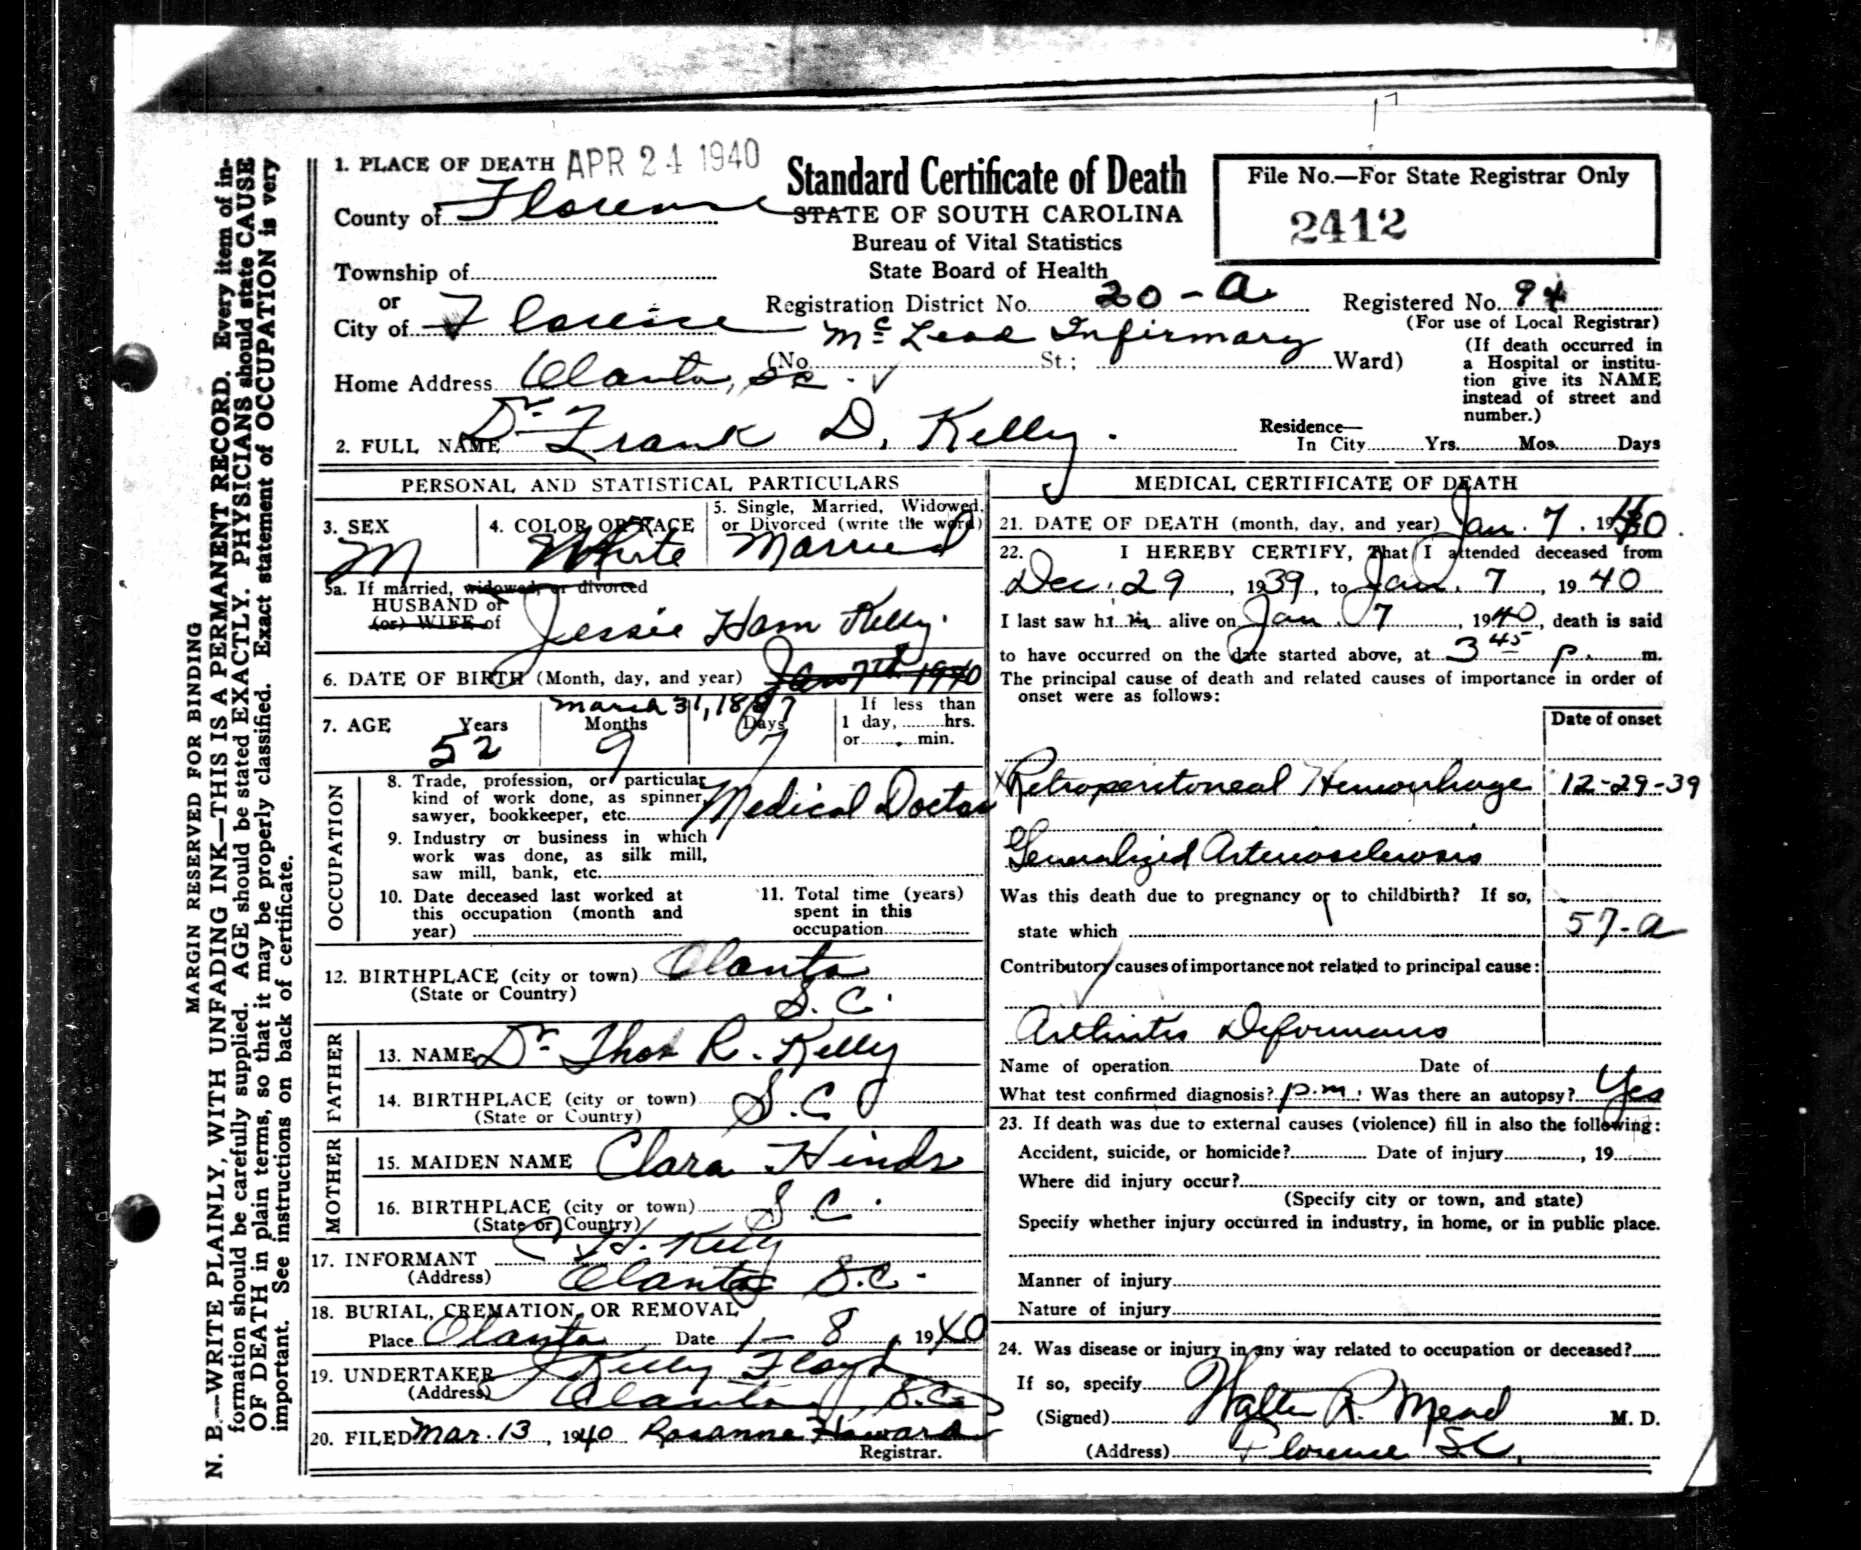 N. B.—WRITE PLAINLY, WITH UNFADING INK—THIS IS A PERMANENT RECORD. Every item of in-
formation should be carefully supplied. AGE should be stated EXACTLY. PHYSICIANS should state CAUSE
OF DEATH in plain terms, so that it may be properly classified. Exact statement of OCCUPATION is very
important. See instructions on back of certificate.
MARGIN RESERVED FOR BINDING
1. PLACE OF DEATH APR 24 1940
County of Florence
Township of
or
City of Florence
Home Address Olanta, SC
Standard Certificate of Death
STATE OF SOUTH CAROLINA
Bureau of Vital Statistics
State Board of Health
File No.—For State Registrar Only
2412
Registration District No. 20-A Registered No. 94
(For use of Local Registrar)
McLeod Infirmary
(No. St.; Ward)
(If death occurred in
a Hospital or institu-
tion give its NAME
instead of street and
number.)
2. FULL NAME Dr. Frank D. Kelly.
Residence—
In City Yrs. Mos. Days
PERSONAL AND STATISTICAL PARTICULARS
3. SEX
M
4. COLOR OR RACE
White
5. Single, Married, Widowed,
or Divorced (write the word)
Married
5a. If married, widowed, or divorced
HUSBAND of
(or) WIFE of
Jessie Ham Kelly.
6. DATE OF BIRTH (Month, day, and year) Jan 7th 1940
March 31, 1887
7. AGE Years Months Days
52 9 7
If less than
1 day, hrs.
or min.
OCCUPATION
8. Trade, profession, or particular
kind of work done, as spinner,
sawyer, bookkeeper, etc. Medical Doctor
9. Industry or business in which
work was done, as silk mill,
saw mill, bank, etc.
10. Date deceased last worked at
this occupation (month and
year)
11. Total time (years)
spent in this
occupation
12. BIRTHPLACE (city or town) Olanta
(State or Country) S.C.
FATHER
13. NAME Dr. Thos R. Kelly
14. BIRTHPLACE (city or town) S.C
(State or Country)
MOTHER
15. MAIDEN NAME Clara Hinds
16. BIRTHPLACE (city or town) S.C.
(State or Country)
17. INFORMANT C H. Kelly
(Address) Olanta S.C.
18. BURIAL, CREMATION, OR REMOVAL
Place Olanta Date 1-8, 1940
19. UNDERTAKER Kelly Floyd
(Address) Olanta, S.C.
20. FILED Mar. 13, 1940 Rosanne Howard
Registrar.
MEDICAL CERTIFICATE OF DEATH
21. DATE OF DEATH (month, day, and year) Jan. 7, 1940.
22. I HEREBY CERTIFY, That I attended deceased from
Dec. 29, 1939, to Jan. 7, 1940
I last saw him alive on Jan. 7, 1940, death is said
to have occurred on the date started above, at 3 45 P. m.
The principal cause of death and related causes of importance in order of
onset were as follows:
Date of onset
Retroperitoneal Hemorrhage 12-29-39
Generalized Arteriosclerosis
Was this death due to pregnancy or to childbirth? If so,
state which 57-a
Contributory causes of importance not related to principal cause:
Arthritis Deformans
Name of operation Date of
What test confirmed diagnosis? p.m. Was there an autopsy? Yes
23. If death was due to external causes (violence) fill in also the following:
Accident, suicide, or homicide? Date of injury , 19
Where did injury occur?
(Specify city or town, and state)
Specify whether injury occurred in industry, in home, or in public place.
Manner of injury
Nature of injury
24. Was disease or injury in any way related to occupation or deceased?
If so, specify
(Signed) Walter R. Mead M. D.
(Address) Florence SC.